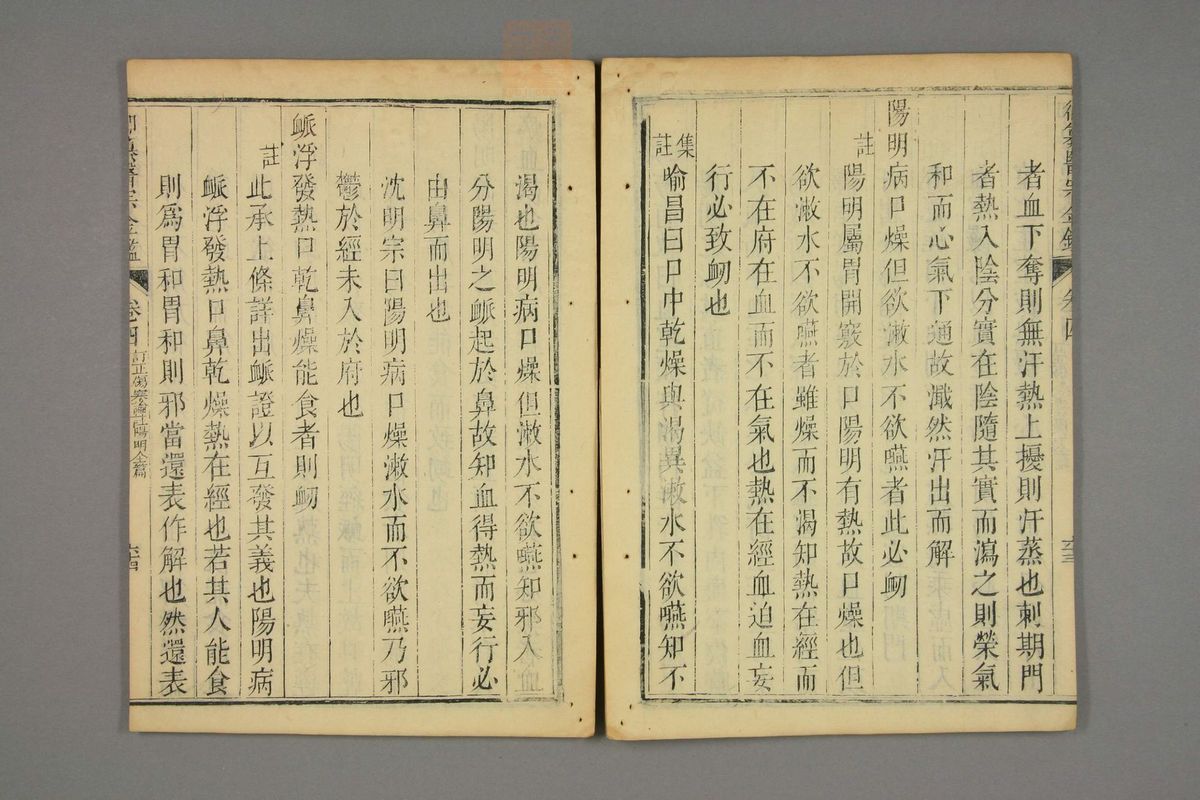 御纂醫宗金鑑 卷四 六三
者血下奪則無汗熱上擾則汗蒸也刺期門
者熱入陰分實在陰隨其實而瀉之則榮氣
和而心氣下通故濈然汗出而解
陽明病口燥但欲漱水不欲嚥者此必衂
註 陽明屬胃開竅於口陽明有熱故口燥也但
欲漱水不欲嚥者雖燥而不渴知熱在經而
不在府在血而不在氣也熱在經血迫血妄
行必致衂也
集註 喻昌曰口中乾燥與渴異漱水不欲嚥知不
渴也陽明病口燥但漱水不欲嚥知邪入血
分陽明之脈起於鼻故知血得熱而妄行必
由鼻而出也
沈明宗曰陽明病口燥漱水而不欲嚥乃邪
鬱於經未入於府也
脈浮發熱口乾鼻燥能食者則衂
註 此承上條詳出脈證以互發其義也陽明病
脈浮發熱口鼻乾燥熱在經也若其人能食
則爲胃和胃和則邪當還表作解也然還表
御纂醫宗金鑑 卷四 訂正傷寒論註陽明全篇 六四